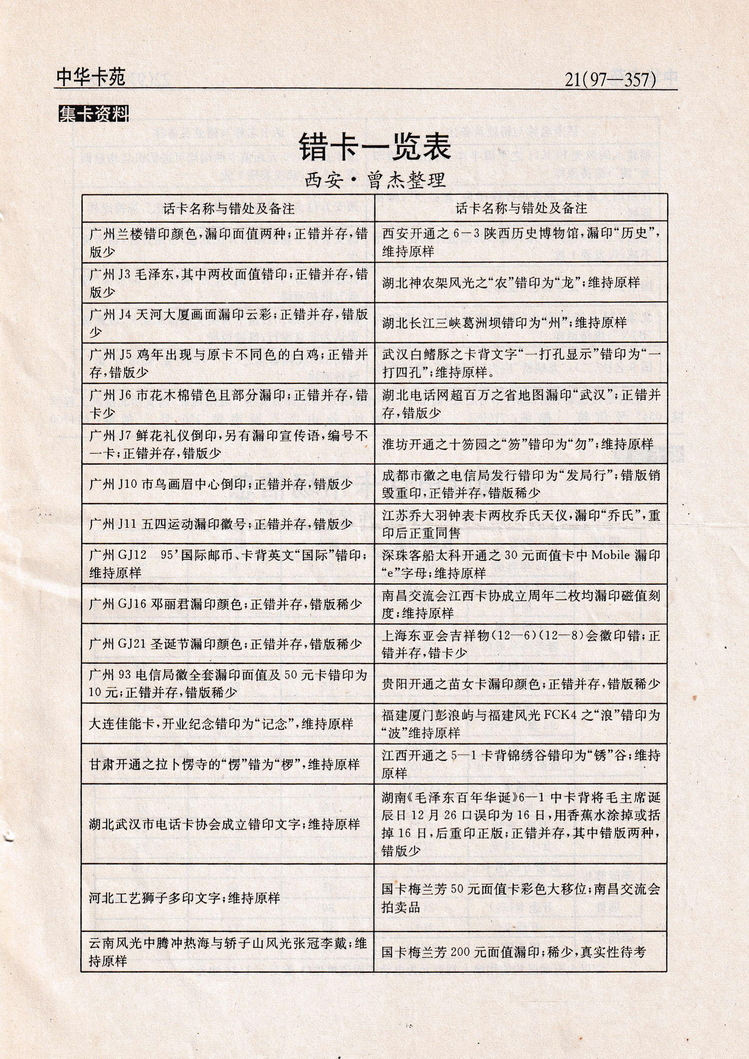 中华卡苑
21(97—357)
集卡资料
错卡一览表
西安·曾杰整理
话卡名称与错处及备注
话卡名称与错处及备注
广州兰楼错印颜色,漏印面值两种;正错并存,错
版少
西安开通之6—3陕西历史博物馆,漏印“历史”,
维持原样
广州J3毛泽东,其中两枚面值错印;正错并存,错
版少
湖北神农架风光之“农”错印为“龙”;维持原样
广州J4天河大厦画面漏印云彩;正错并存,错版
少
湖北长江三峡葛洲坝错印为“州”;维持原样
广州J5鸡年出现与原卡不同色的白鸡;正错并
存,错版少
武汉白鳍豚之卡背文字“一打孔显示”错印为“一
打四孔”;维持原样。
广州J6市花木棉错色且部分漏印;正错并存,错
卡少
湖北电话网超百万之省地图漏印“武汉”;正错并
存,错版少
广州J7鲜花礼仪倒印,另有漏印宣传语,编号不
一卡;正错并存,错版少
潍坊开通之十笏园之“笏”错印为“勿”;维持原样
广州J10市鸟画眉中心倒印;正错并存,错版少
成都市徽之电信局发行错印为“发局行”;错版销
毁重印,正错并存,错版稀少
广州J11五四运动漏印徽号;正错并存,错版少
江苏乔大羽钟表卡两枚乔氏天仪,漏印“乔氏”,重
印后正重同售
广州GJ12 95’国际邮币、卡背英文“国际”错印;
维持原样
深珠客船太科开通之30元面值卡中Mobile漏印
“e”字母;维持原样
广州GJ16邓丽君漏印颜色;正错并存,错版稀少
南昌交流会江西卡协成立周年二枚均漏印磁值刻
度;维持原样
广州GJ21圣诞节漏印颜色;正错并存,错版稀少
上海东亚会吉祥物(12—6)(12—8)会徽印错;正
错并存,错卡少
广州93电信局徽全套漏印面值及50元卡错印为
10元;正错并存,错版稀少
贵阳开通之苗女卡漏印颜色;正错并存,错版稀少
大连佳能卡,开业纪念错印为“记念”,维持原样
福建厦门彭浪屿与福建风光FCK4之“浪”错印为
“波”维持原样
甘肃开通之拉卜愣寺的“愣”错为“椤”,维持原样
江西开通之5—1卡背锦绣谷错印为“锈”谷;维持
原样
湖北武汉市电话卡协会成立错印文字;维持原样
湖南《毛泽东百年华诞》6—1中卡背将毛主席诞
辰日12月26口误印为16日,用香蕉水涂掉或括
掉16日,后重印正版;正错并存,其中错版两种,
错版少
河北工艺狮子多印文字;维持原样
国卡梅兰芳50元面值卡彩色大移位;南昌交流会
拍卖品
云南风光中腾冲热海与轿子山风光张冠李戴;维
持原样
国卡梅兰芳200元面值漏印;稀少,真实性待考